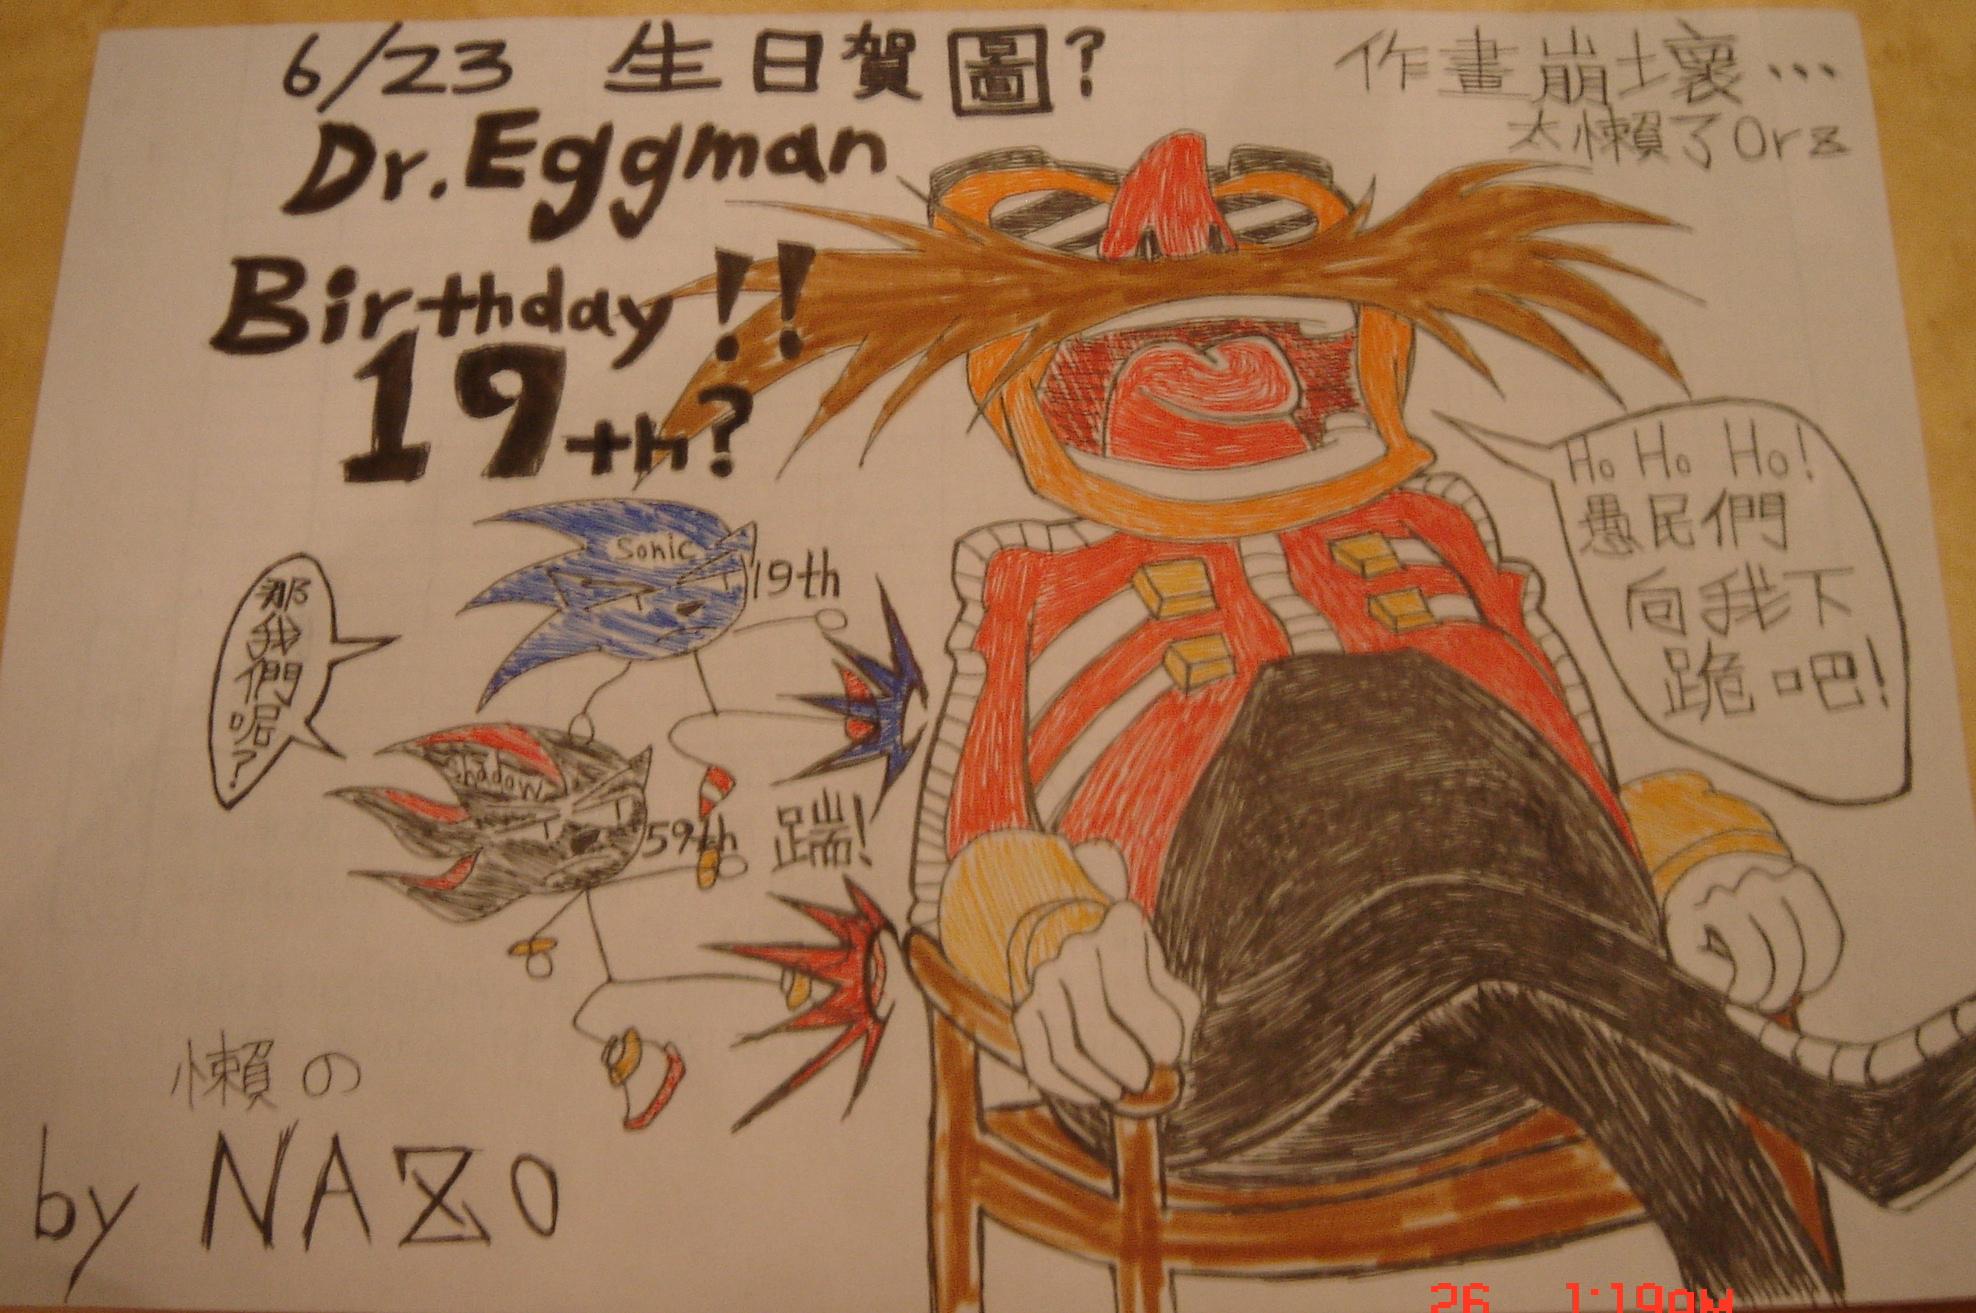 6/23 生日賀圖?
Dr. Eggman
Birthday!!
19th?
作畫崩壞...
太懶了Orz
Ho Ho Ho!
愚民們
向我下
跪吧!
Sonic
19th
那我們呢?
Shadow
59th
踹!
懶の
by NAZO
26 1:19PM